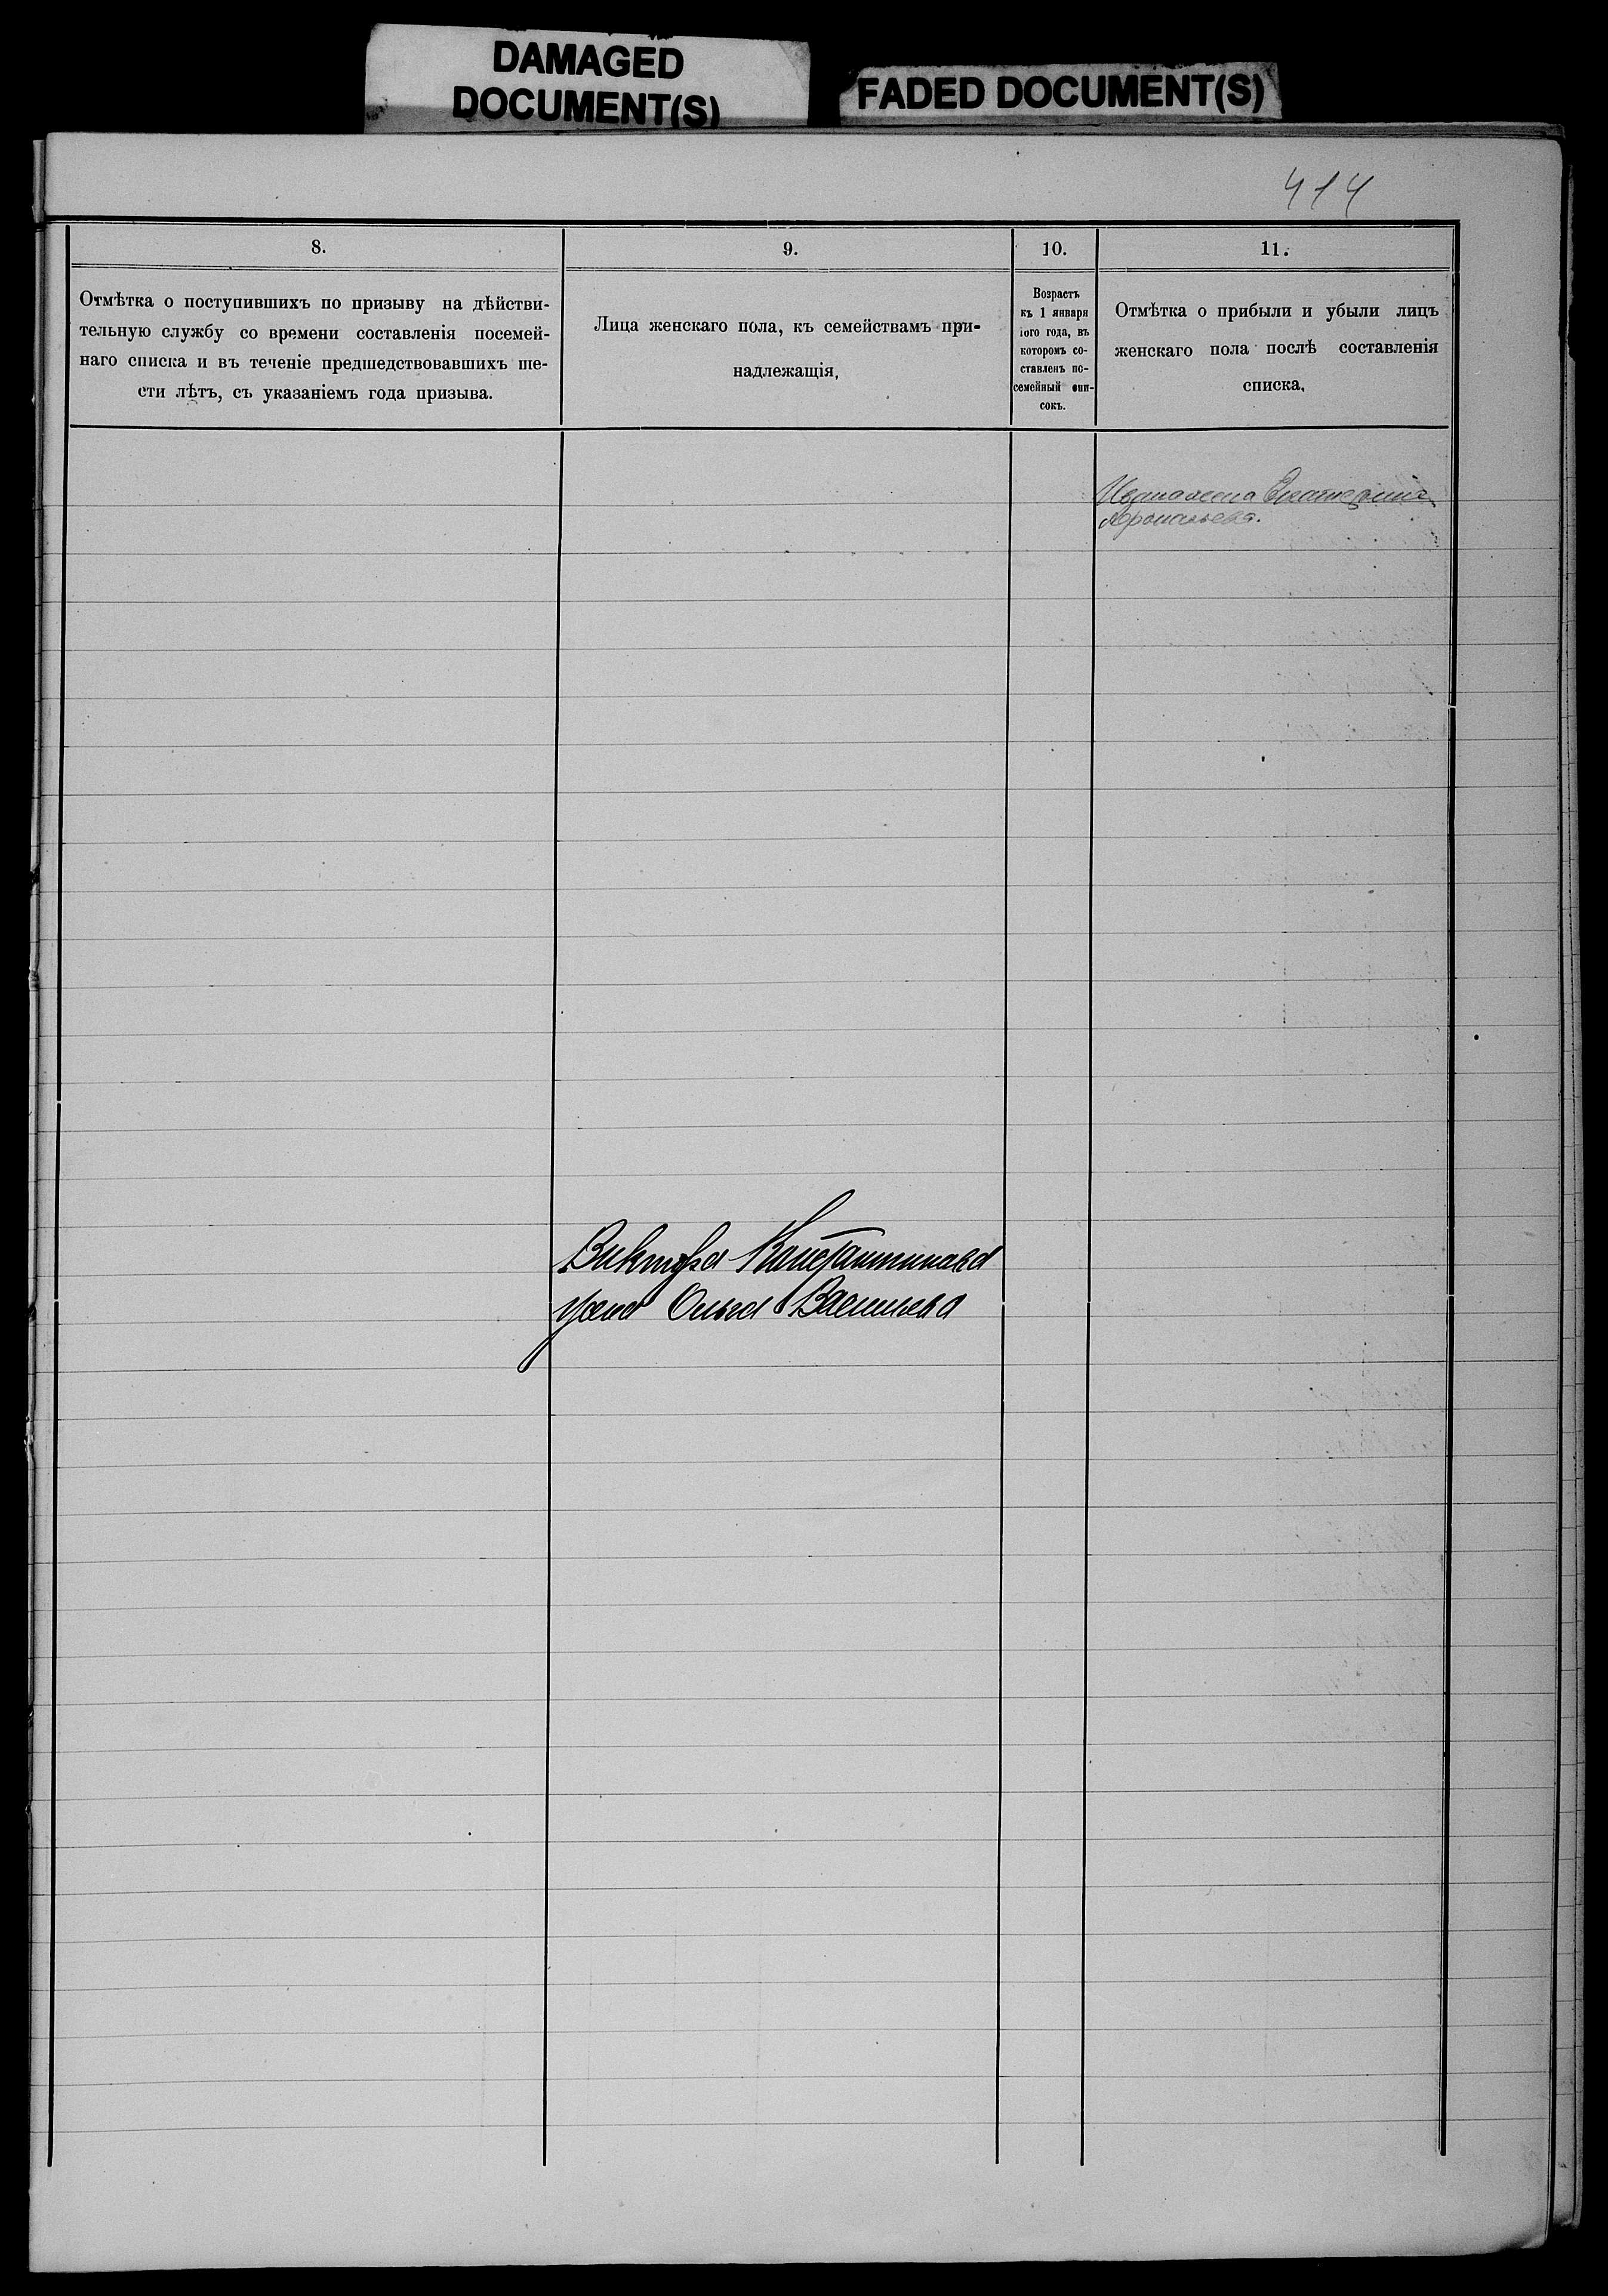 DAMAGED
DOCUMENT(S)
FADED DOCUMENT(S)
414
8.
Отмѣтка о поступившихъ по призыву на дѣйстви-
тельную службу со времени составленія посемей-
наго списка и въ теченіе предшедствовавшихъ ше-
сти лѣтъ, съ указаніемъ года призыва.
9.
Лица женскаго пола, къ семействамъ при-
надлежащія,
10.
Возрастъ
къ 1 января
того года, въ
которомъ со-
ставленъ по-
семейный спи-
сокъ.
11.
Отмѣтка о прибыли и убыли лицъ
женскаго пола послѣ составленія
списка.
Екатерина
Виктора Константинова
жена Ольга Васильева